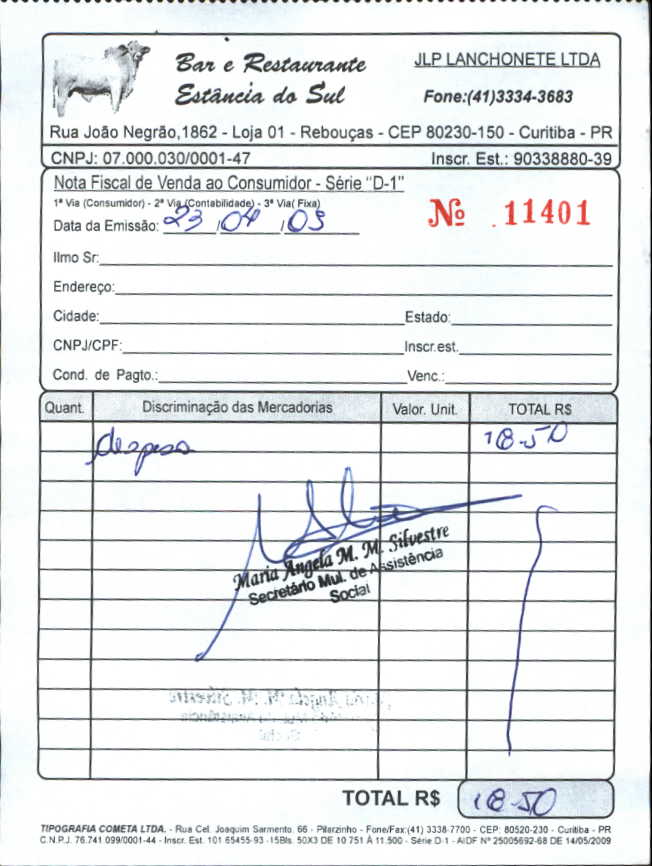 Bar e Restaurante
Estância do Sul
JLP LANCHONETE LTDA
Fone:(41)3334-3683
Rua João Negrão,1862 - Loja 01 - Rebouças - CEP 80230-150 - Curitiba - PR
CNPJ: 07.000.030/0001-47 Inscr. Est.: 90338880-39
Nota Fiscal de Venda ao Consumidor - Série "D-1"
1ª Via (Consumidor) - 2ª Via (Contabilidade) - 3ª Via( Fixa)
Nº 11401
Data da Emissão: 23 / 04 / 09
Ilmo Sr:
Endereço:
Cidade: Estado:
CNPJ/CPF: Inscr.est.
Cond. de Pagto.: Venc.:
Quant. Discriminação das Mercadorias Valor. Unit. TOTAL R$
despesa 18.50
Maria Angela M. M. Silvestre
Secretário Mul. de Assistência
Social
TOTAL R$ 18.50
TIPOGRAFIA COMETA LTDA. - Rua Cel. Joaquim Sarmento, 66 - Pilarzinho - Fone/Fax:(41) 3338-7700 - CEP: 80520-230 - Curitiba - PR
C.N.P.J. 76.741.099/0001-44 - Inscr. Est. 101.65455-93 -15Bls. 50X3 DE 10.751 À 11.500 - Série D-1 - AIDF Nº 25005692-68 DE 14/05/2009